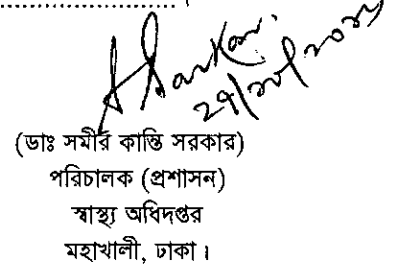 (ডাঃ সমীর কান্তি সরকার)
পরিচালক (প্রশাসন)
স্বাস্থ্য অধিদপ্তর
মহাখালী, ঢাকা।